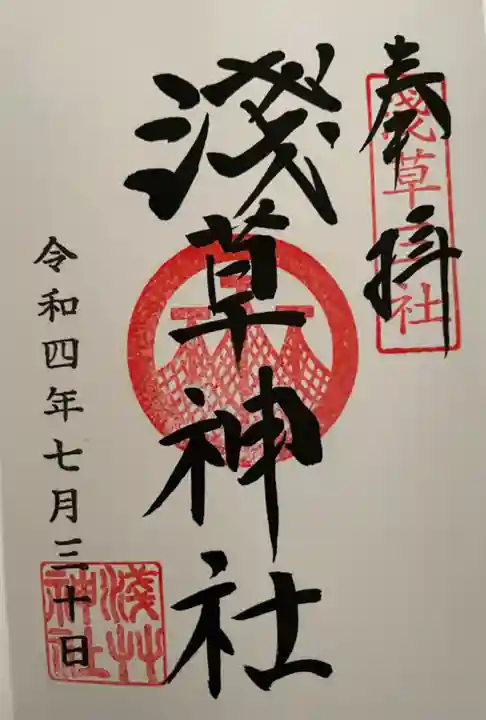 奉拝
浅草三社
淺草神社
令和四年七月三十日
淺草
神社